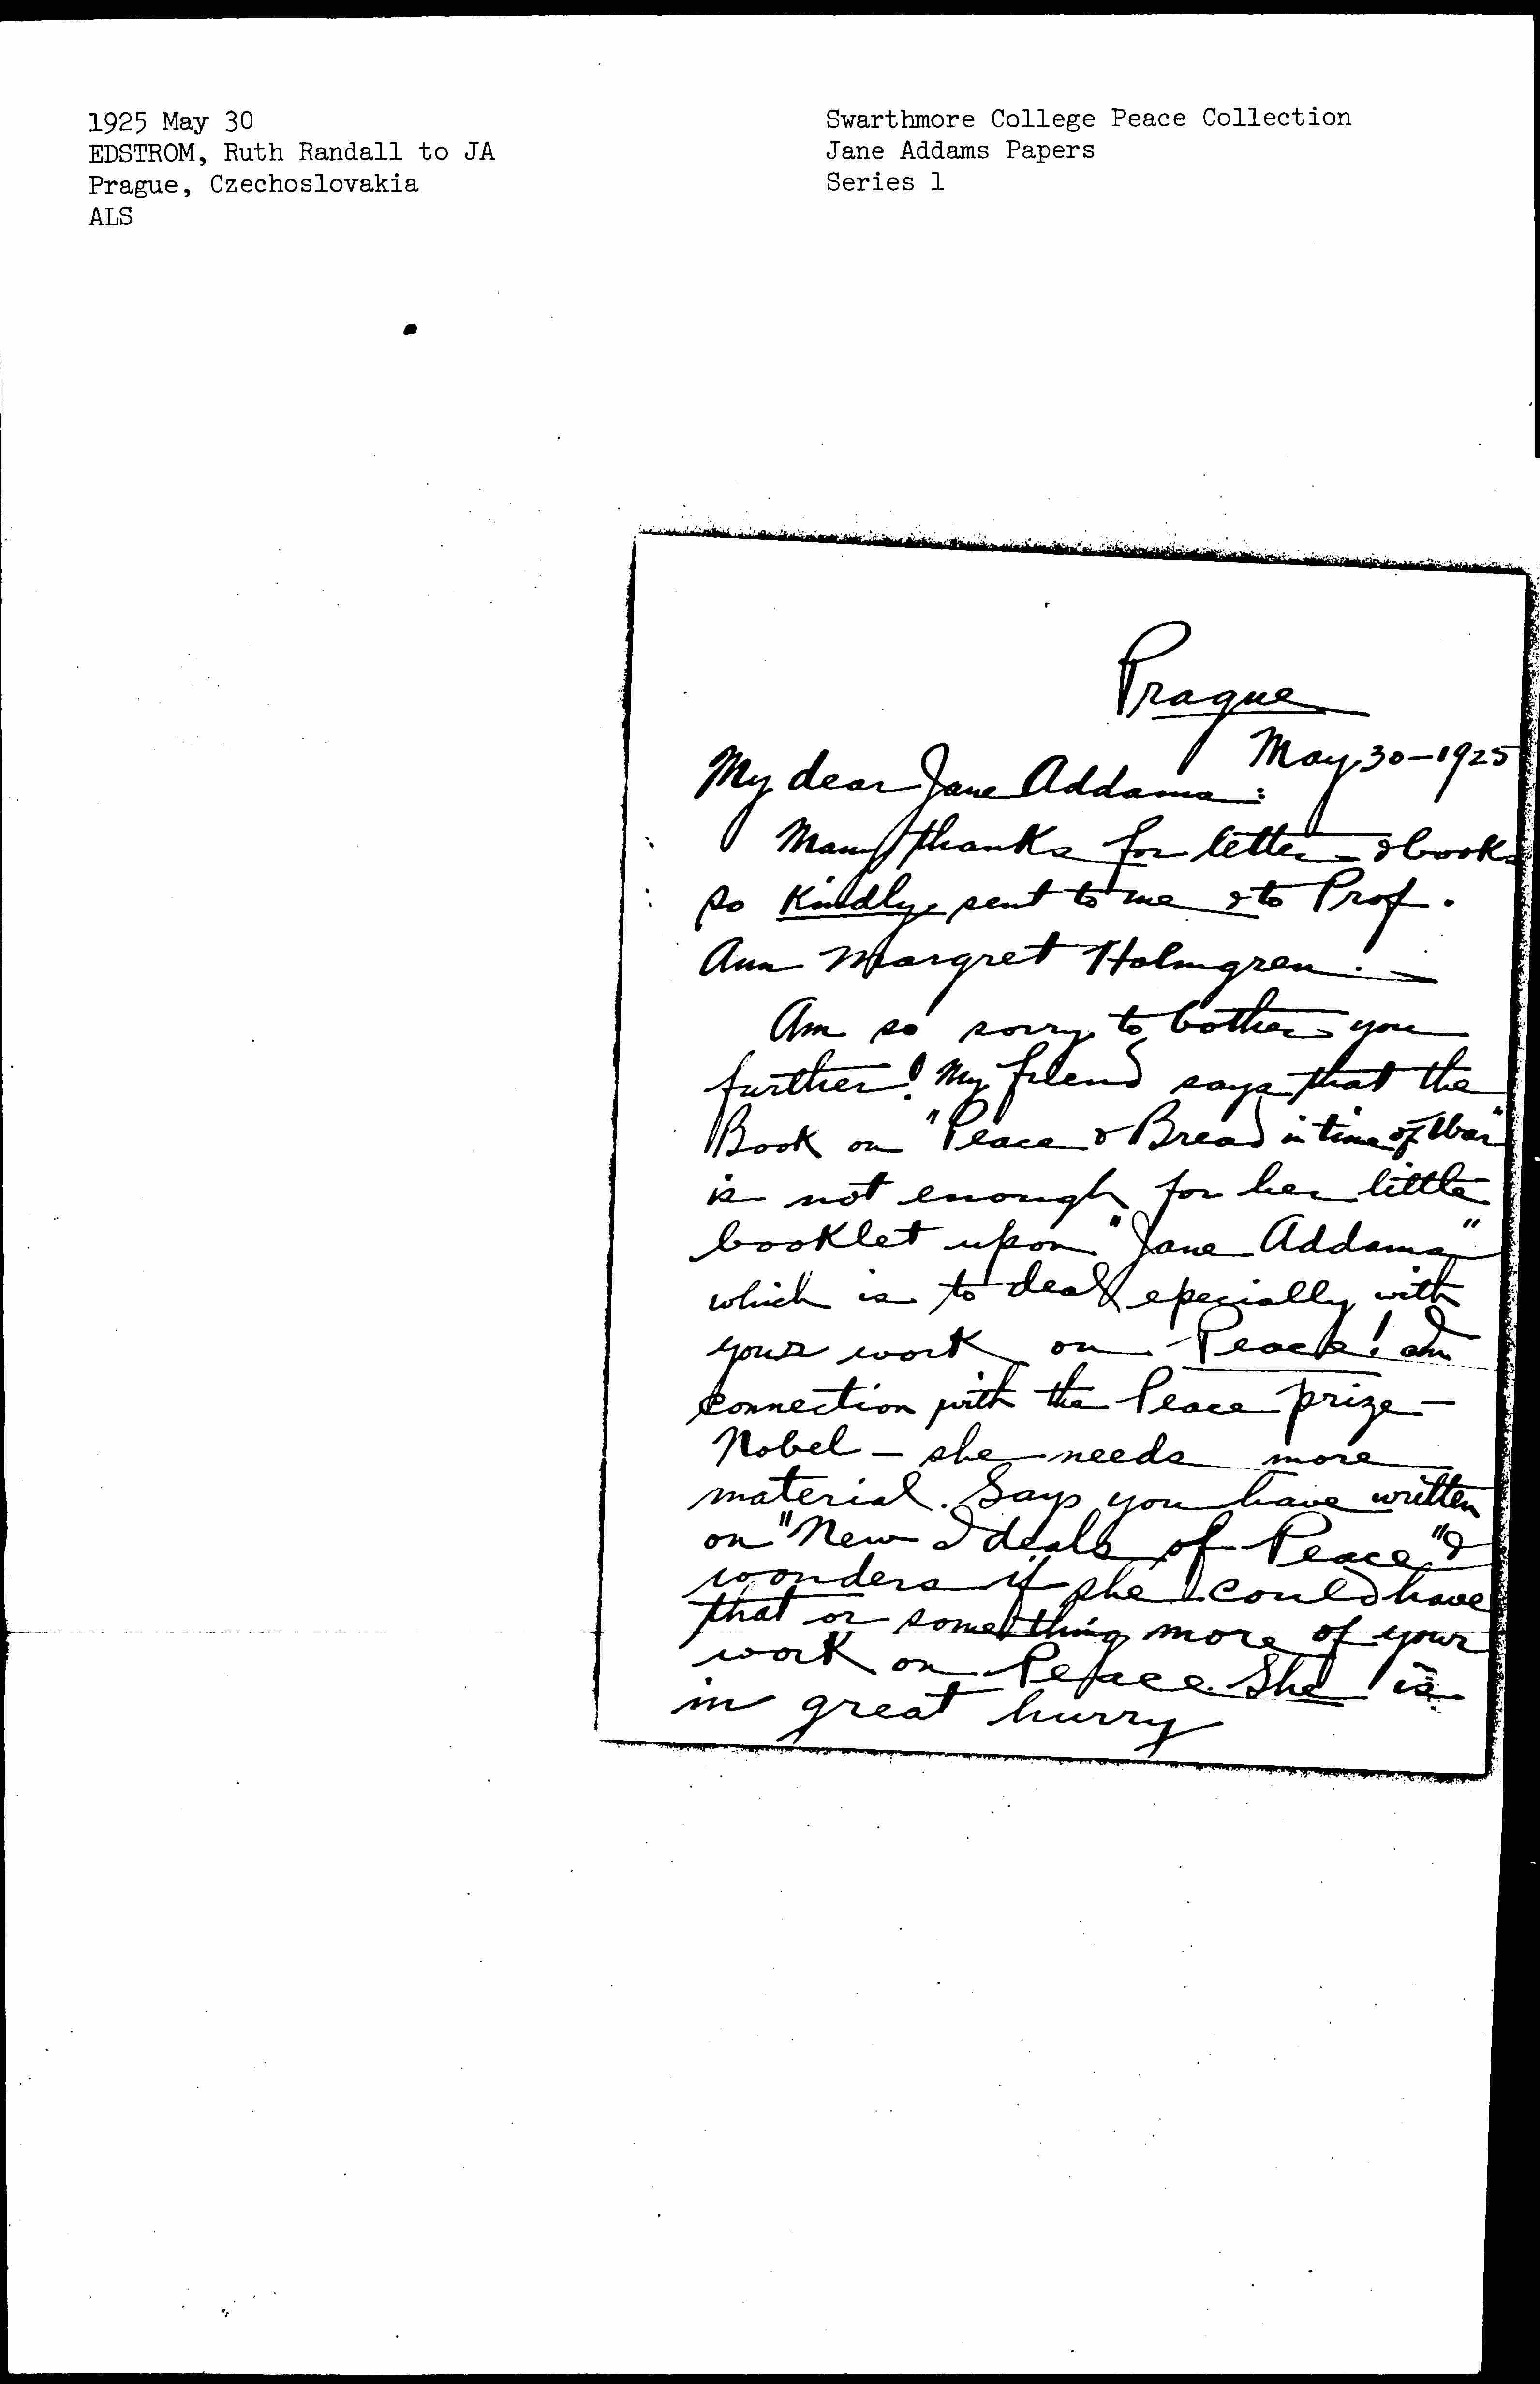 1925 May 30
EDSTROM, Ruth Randall to JA
Prague, Czechoslovakia
ALS
Swarthmore College Peace Collection
Jane Addams Papers
Series 1
Prague
May 30-1925
My dear Jane Addams:
Many thanks for letter & books
so kindly sent to me & to Prof.
Ann Margret Holmgren. —
Am so sorry to bother you
further! My friend says that the
Book on "Peace & Bread in time of War"
is not enough for her little
booklet upon "Jane Addams"
which is to deal epecially with
your work on Peace! and
connection with the Peace prize —
Nobel — she needs more
material. Says you have written
on "New Ideals of Peace" &
wonders if she could have
that or something more of your
work on Peace. She is
in great hurry